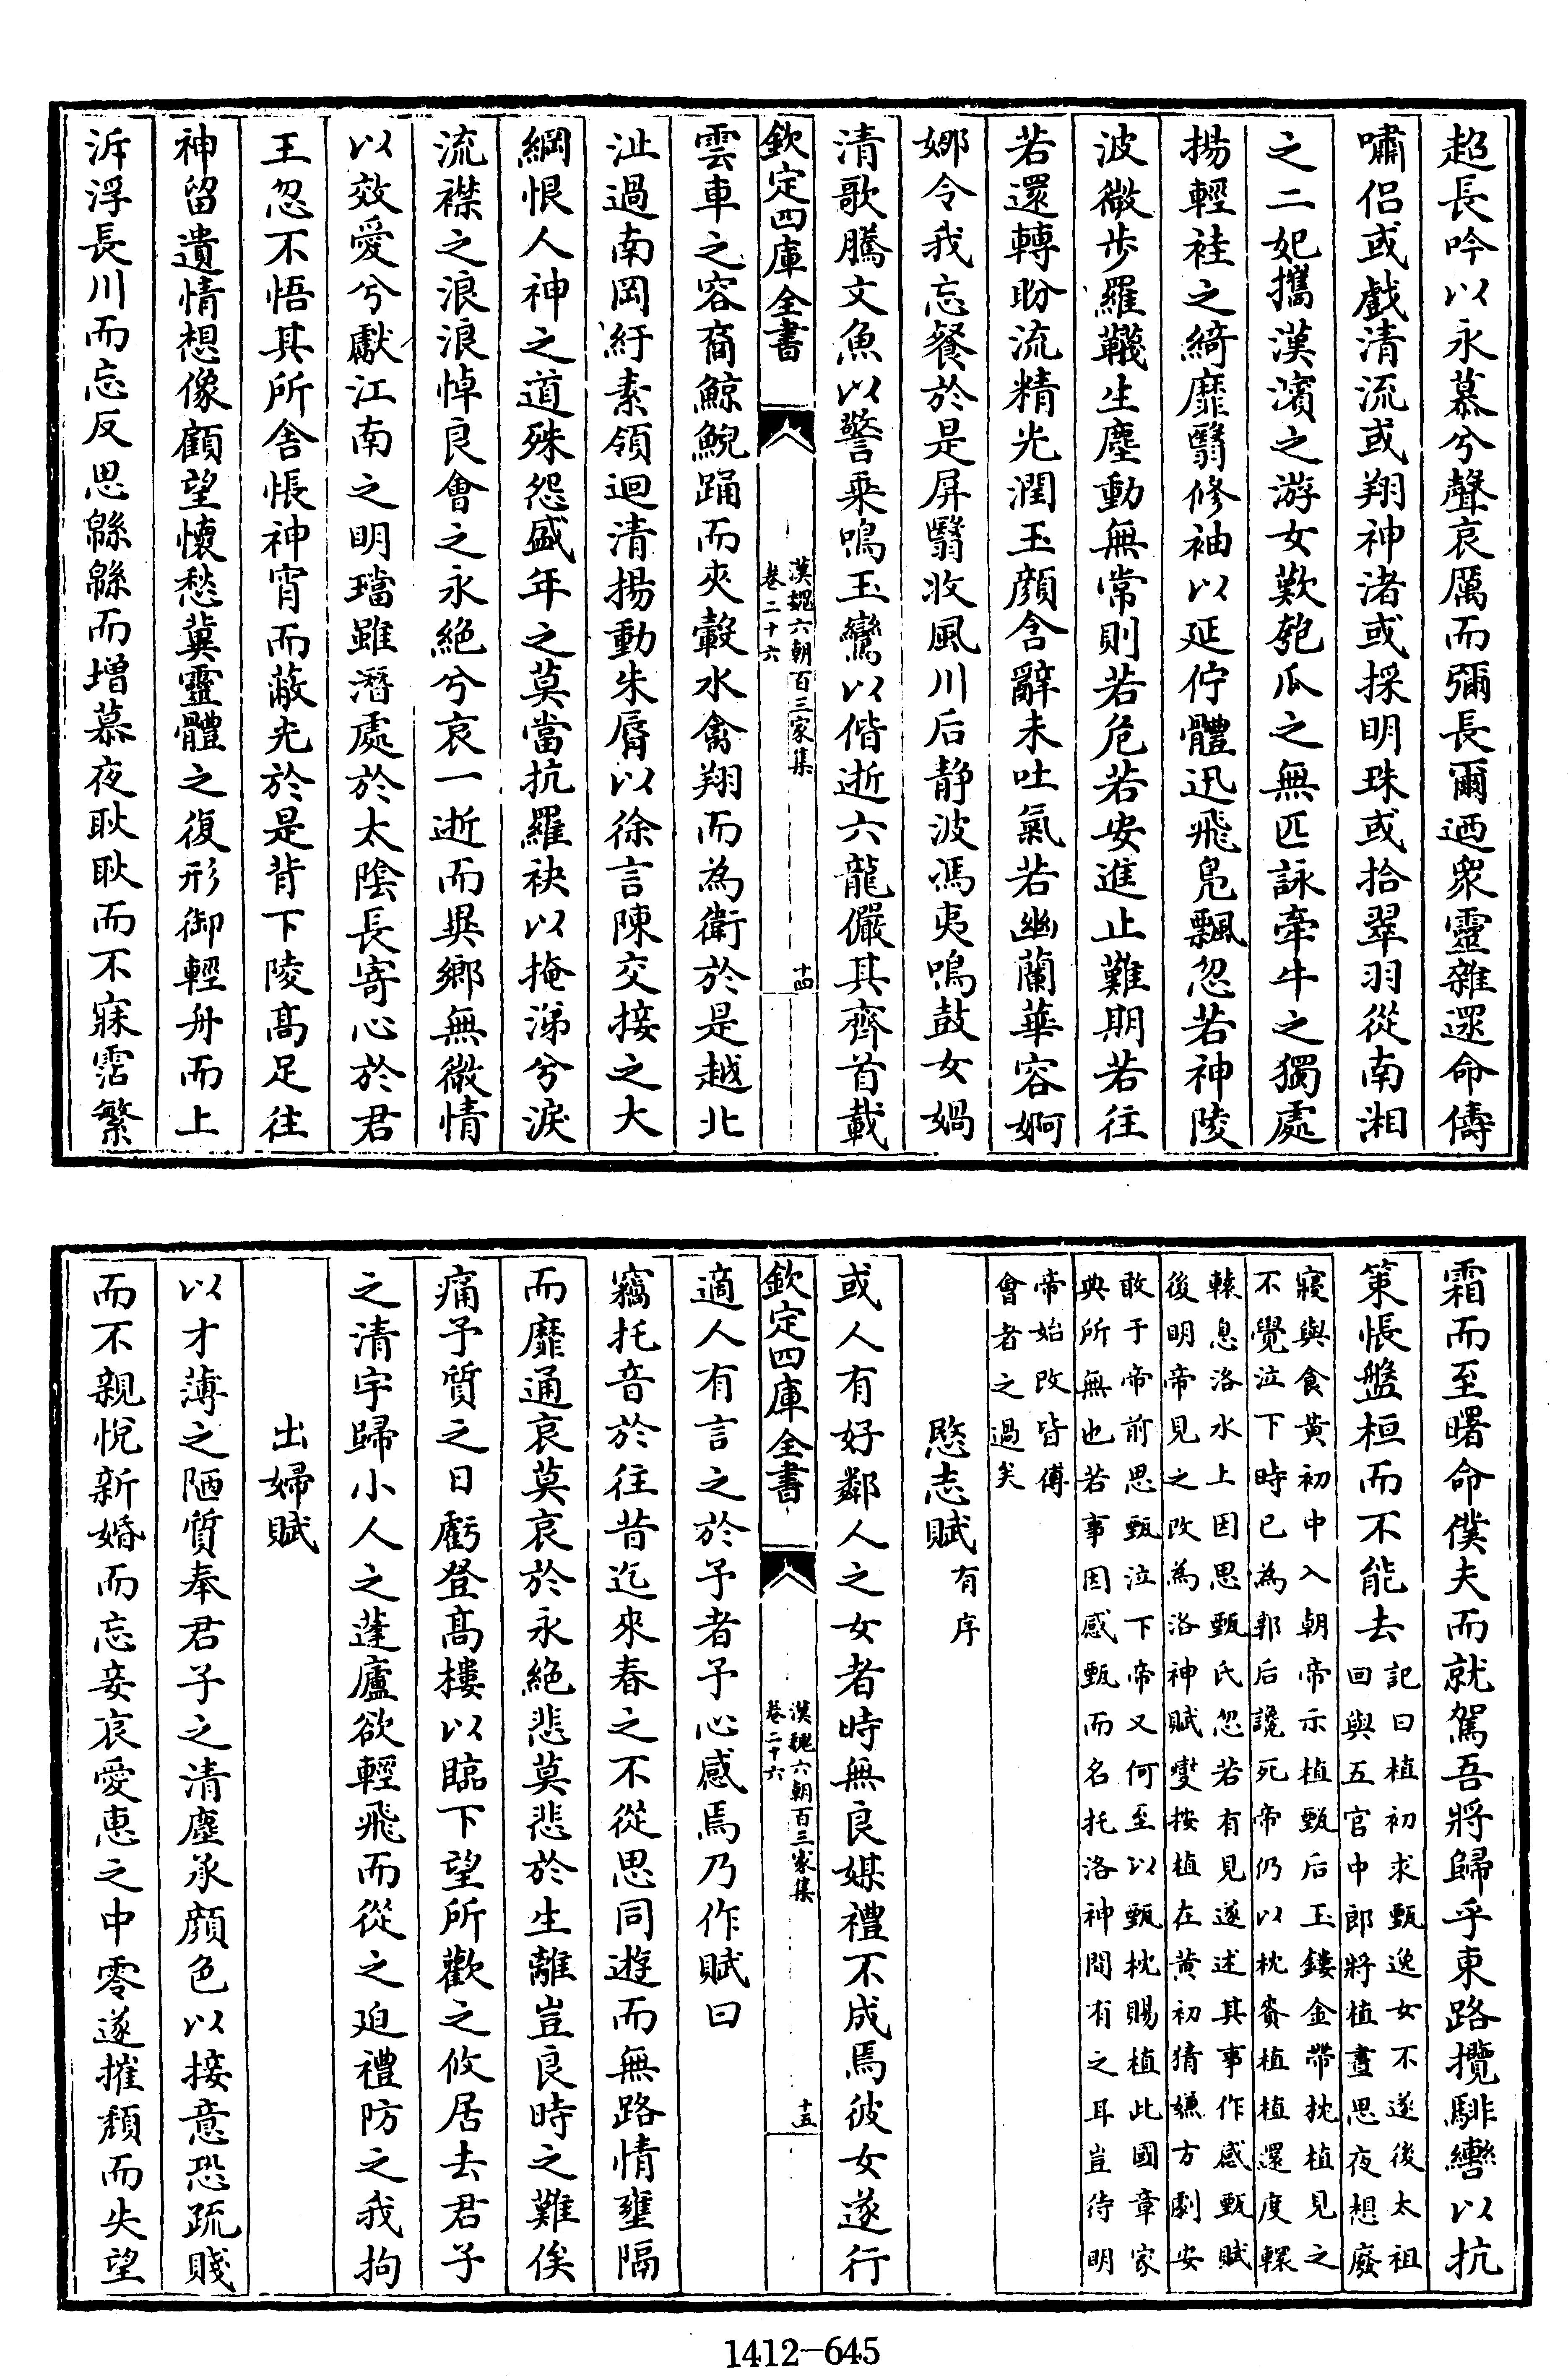 超長吟以永慕兮聲哀厲而彌長爾迺衆靈雜遝命儔
嘯侶或戲清流或翔神渚或採明珠或拾翠羽從南湘
之二妃攜漢濱之游女歎匏瓜之無匹詠牽牛之獨處
揚輕袿之綺靡翳修袖以延佇體迅飛鳧飄忽若神陵
波微步羅韈生塵動無常則若危若安進止難期若往
若還轉盼流精光潤玉顔含辭未吐氣若幽蘭華容婀
娜令我忘餐於是屏翳收風川后静波馮夷鳴鼓女媧
清歌騰文魚以警乘鳴玉鸞以偕逝六龍儼其齊首載
欽定四庫全書
漢魏六朝百三家集
卷二十六
十四
雲車之容裔鯨鯢踊而夾轂水禽翔而為衛於是越北
沚過南岡紆素領迴清揚動朱脣以徐言陳交接之大
綱恨人神之道殊怨盛年之莫當抗羅袂以掩涕兮淚
流襟之浪浪悼良會之永絶兮哀一逝而異鄉無微情
以效愛兮獻江南之明璫雖潛處於太陰長寄心於君
王忽不悟其所舍悵神宵而蔽光於是背下陵髙足往
神留遺情想像顧望懷愁冀靈體之復形御輕舟而上
泝浮長川而忘反思緜緜而增慕夜耿耿而不寐霑繁
霜而至曙命僕夫而就駕吾將歸乎東路攬騑轡以抗
策悵盤桓而不能去
記曰植初求甄逸女不遂後太祖
回與五官中郎將植晝思夜想廢
寢與食黄初中入朝帝示植甄后玉鏤金帶枕植見之
不覺泣下時已為郭后讒死帝仍以枕賚植植還度轘
轅息洛水上因思甄氏忽若有見遂述其事作感甄賦
後明帝見之改為洛神賦燮按植在黄初猜嫌方劇安
敢于帝前思甄泣下帝又何至以甄枕賜植此國章家
典所無也若事因感甄而名托洛神間有之耳豈待明
帝始改皆傅
會者之過矣
愍志賦有序
或人有好鄰人之女者時無良媒禮不成焉彼女遂行
欽定四庫全書
漢魏六朝百三家集
卷二十六
十五
適人有言之於予者予心感焉乃作賦曰
竊托音於往昔迄來春之不從思同遊而無路情壅隔
而靡通哀莫哀於永絶悲莫悲於生離豈良時之難俟
痛予質之日虧登髙樓以臨下望所歡之攸居去君子
之清宇歸小人之蓬廬欲輕飛而從之迫禮防之我拘
出婦賦
以才薄之陋質奉君子之清塵承顔色以接意恐疏賤
而不親悅新婚而忘妾哀愛惠之中零遂摧頽而失望
1412-645